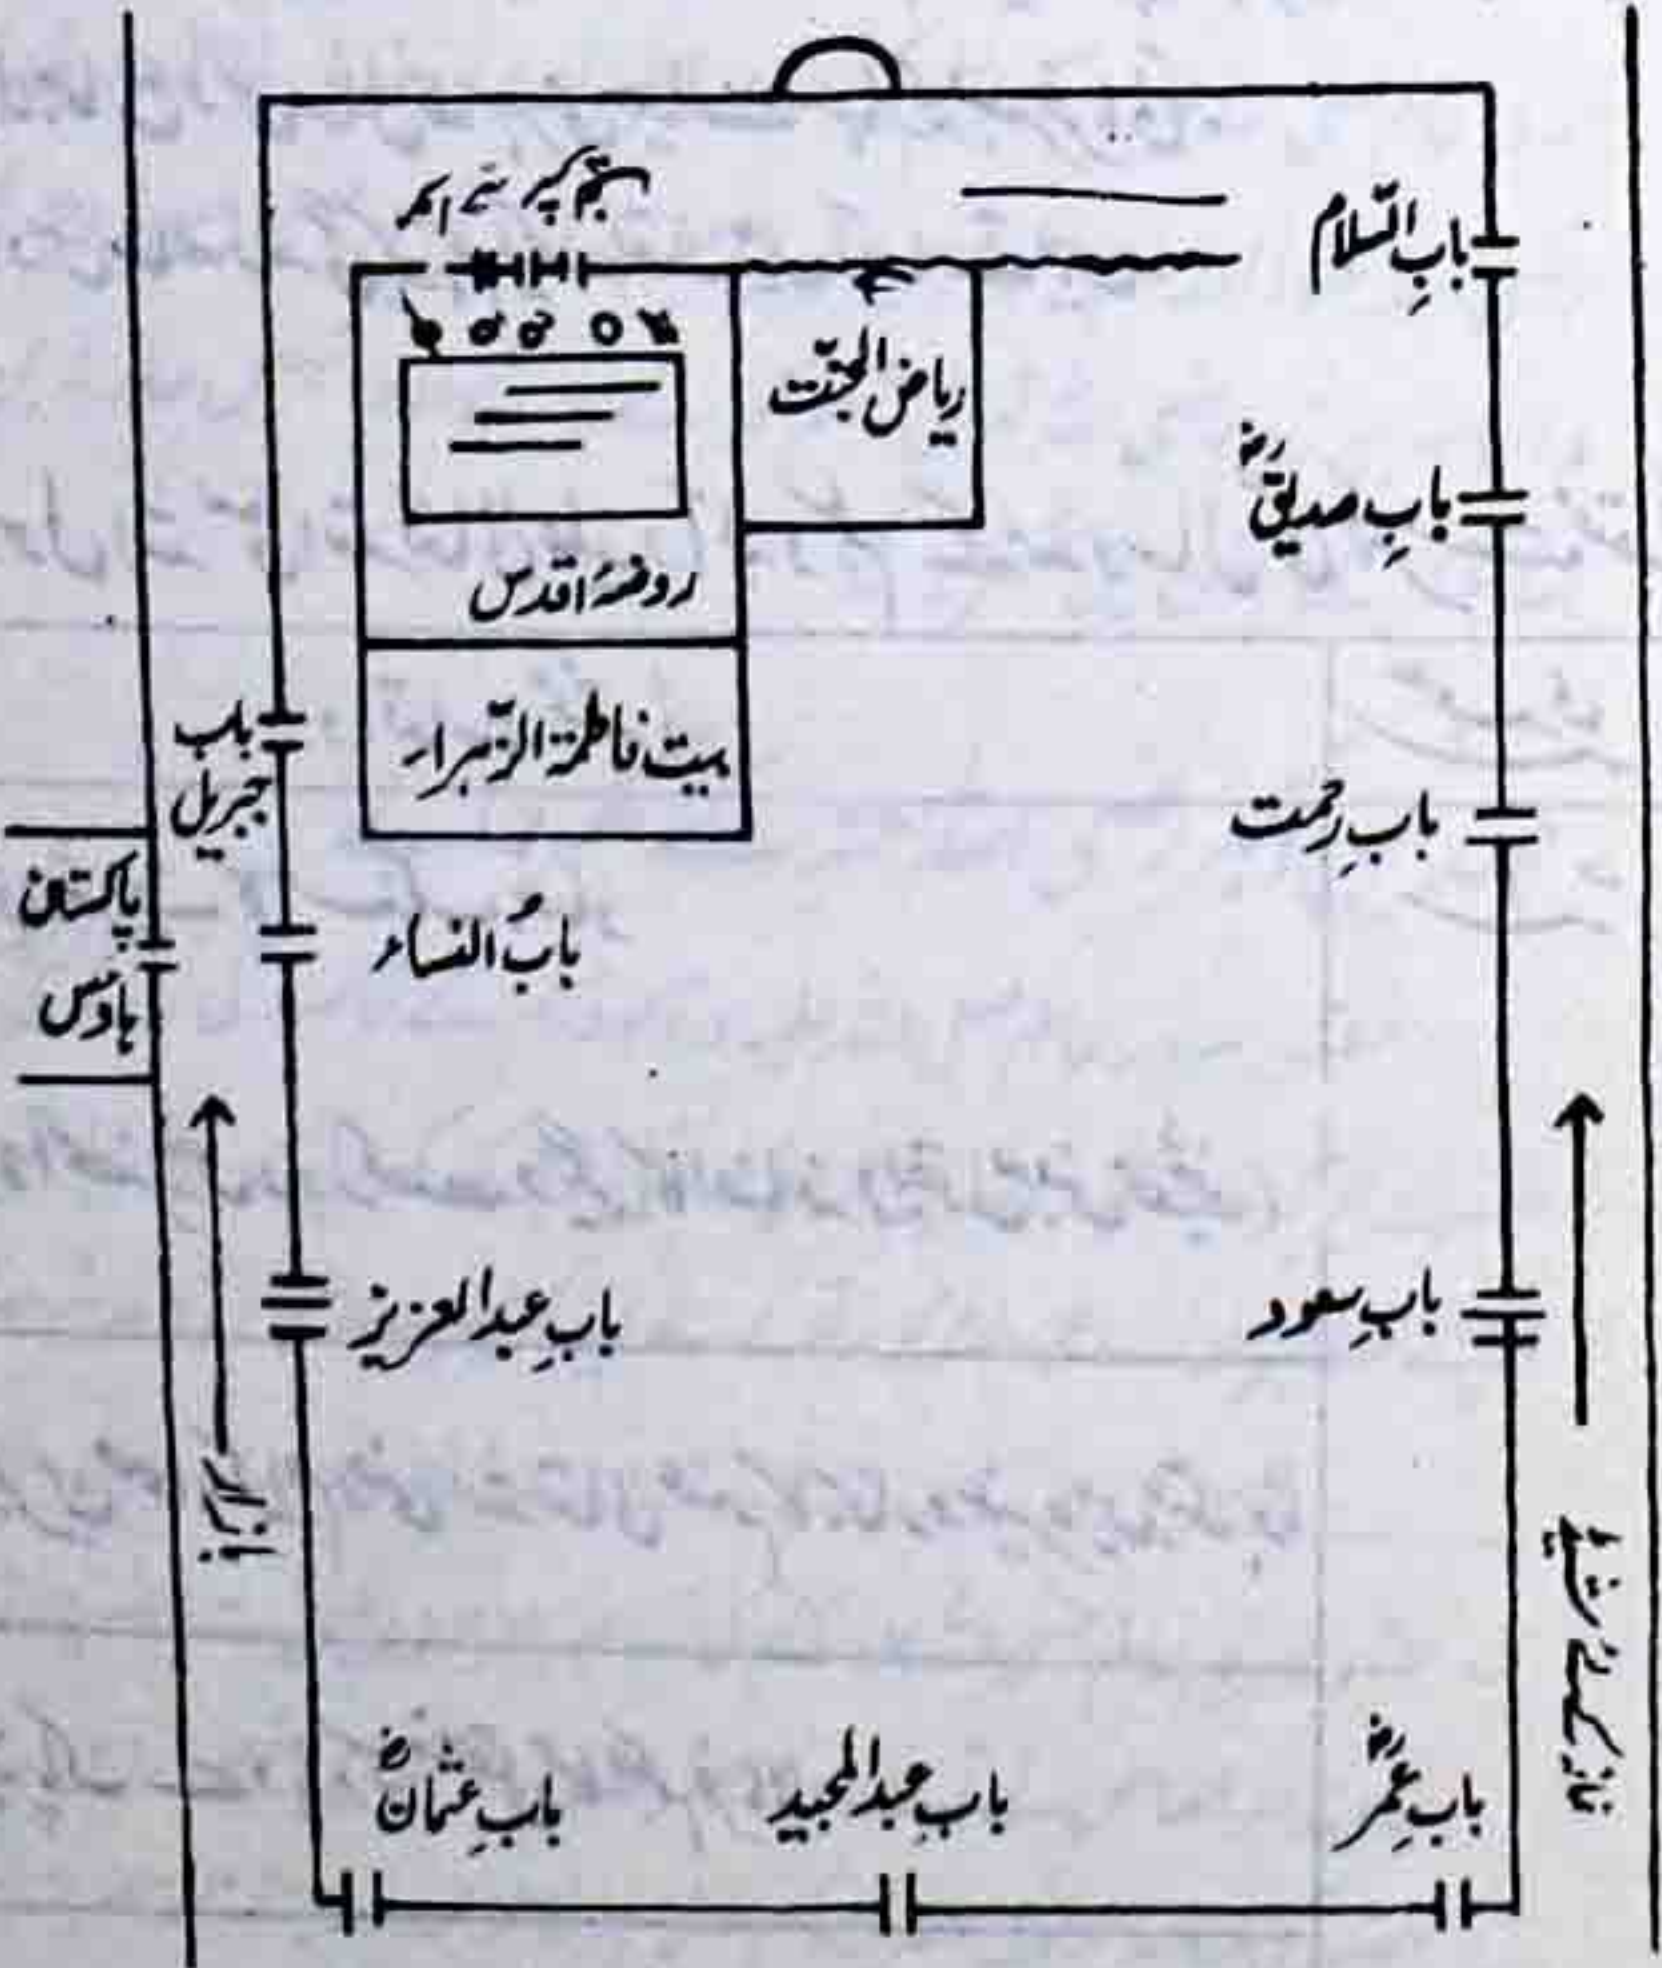 باب السّلام
ریاض الجنّت
باب صدیقؓ
روضۂ اقدس
باب جبریل
بیت فاطمۃ الزّہراء
باب رحمت
پاکستان
ہاؤس
بابُ النساء
باب عبدالعزیز
باب سعود
بازار
باب عثمانؓ
باب عبدالمجید
باب عمرؓ